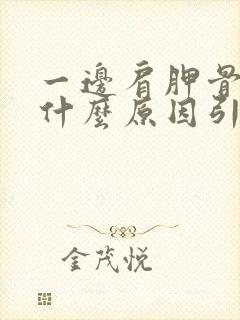 一邊肩胛骨
什麼原因引
金茂悦